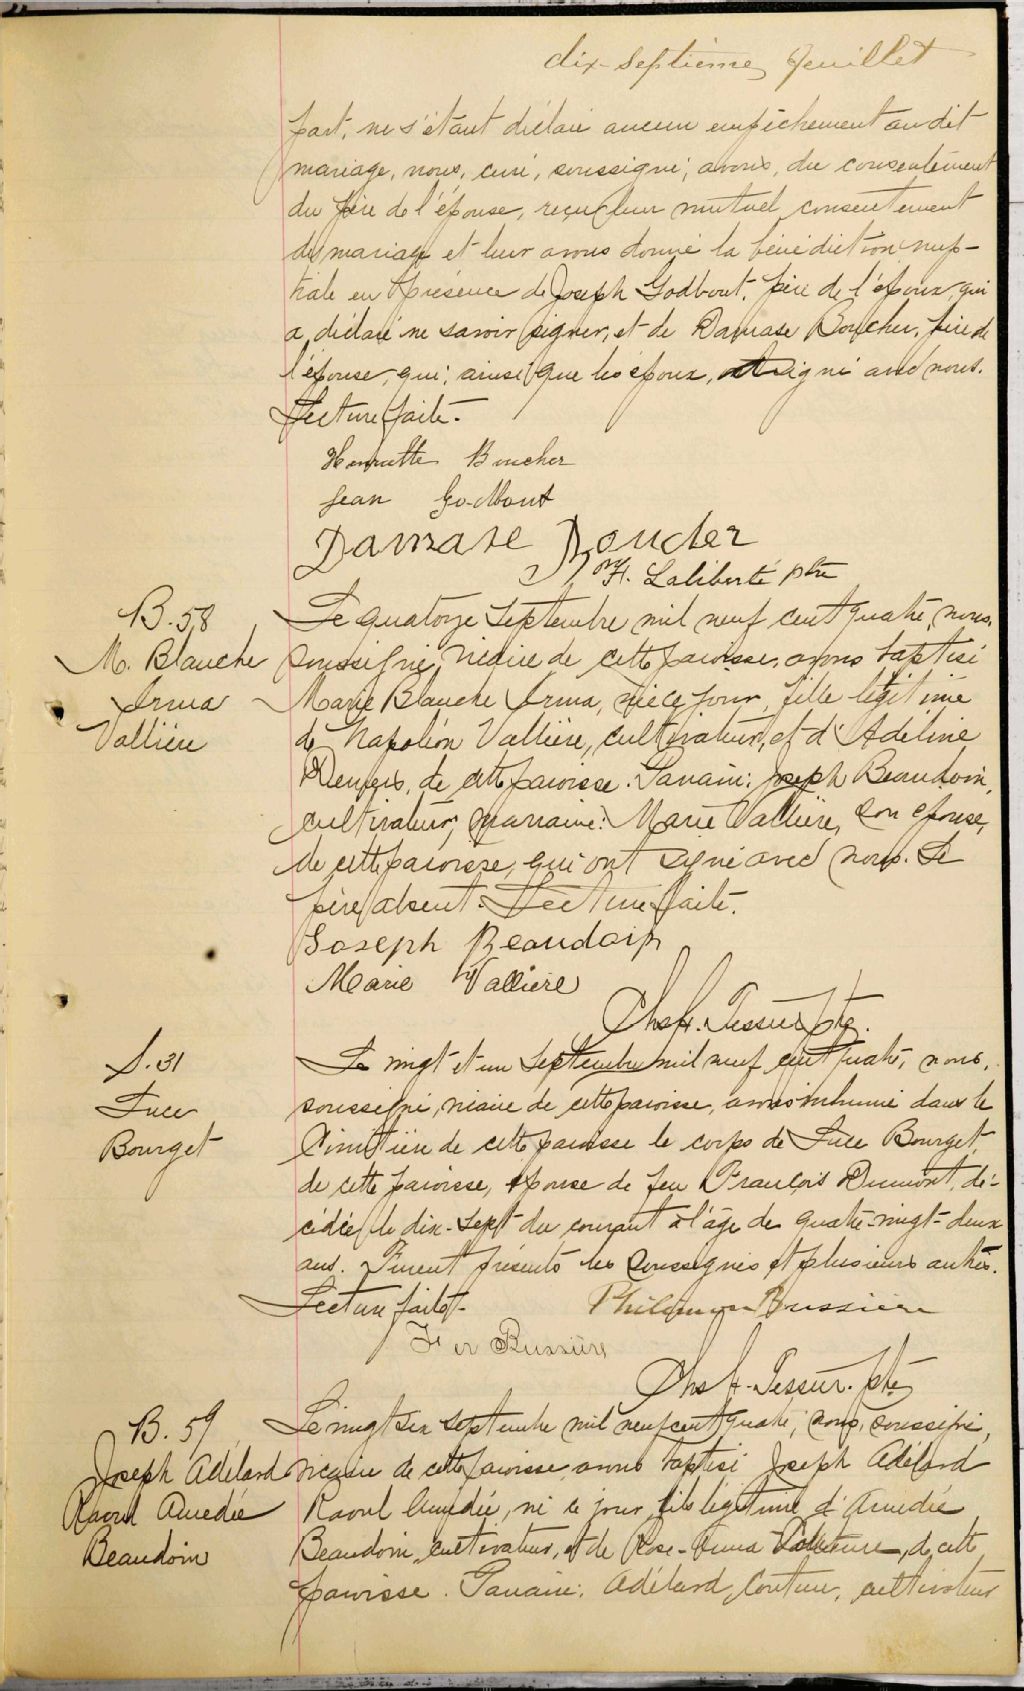 dix-septième feuillet
part, ne s'étant déclaré aucun empêchement au dit
mariage, nous, curé, soussigné, avons, du consentement
du père de l'épouse, reçu leur mutuel consentement
de mariage et leur avons donné la bénédiction nup-
tiale en présence de Joseph Godbout, père de l'époux, qui
a déclaré ne savoir signer, et de Damase Boucher, père de
l'épouse, qui, ainsi que les époux, ont signé avec nous.
Lecture faite.
Henriette Boucher
Jean Godbout
Damase Boucher
H. Laliberté ptre
B. 58
M. Blanche
Irma
Vallière
Le quatorze septembre mil neuf cent quatre, nous,
soussigné, vicaire de cette paroisse, avons baptisé
Marie Blanche Irma, née ce jour, fille légitime
de Napoléon Vallière, cultivateur, et d'Adéline
de cette paroisse. Parrain: Joseph Beaudoin,
cultivateur, marraine: Marie Vallière, son épouse,
de cette paroisse, qui ont signé avec nous. Le
père absent. Lecture faite.
Joseph Beaudoin
Marie Vallière
Chs H. Tessier ptre.
S. 31
Luce
Bourget
Le vingt et un septembre mil neuf cent quatre, nous,
soussigné, vicaire de cette paroisse, avons inhumé dans le
Cimetière de cette paroisse le corps de Luce Bourget,
de cette paroisse, épouse de feu François Dumont, dé-
cédée le dix-sept du courant à l'âge de quatre-vingt-deux
ans. Furent présents les soussignés et plusieurs autres.
Lecture faite.
Philémon Bussière
Bussière
Chs H. Tessier. ptre
B. 59
Joseph Adélard
Raoul Amédée
Beaudoin
Le vingt six septembre mil neuf cent quatre, nous, soussigné,
vicaire de cette paroisse avons baptisé Joseph Adélard
Raoul Amédée, né ce jour, fils légitime d'Amédée
Beaudoin, cultivateur, et de Rose-Anna Couture, de cette
paroisse. Parrain: Adélard Couture, cultivateur